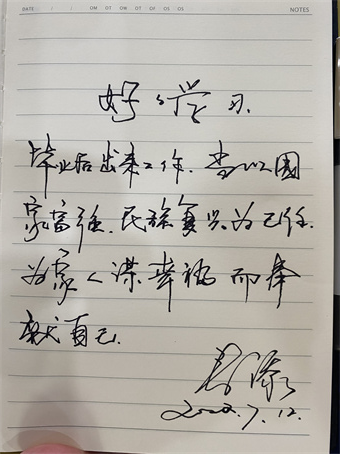 DATE / / OM OT OW OT OF OS OS NOTES
好好学习.
毕业后出来工作.当以国
家富强.民族复兴为己任.
为家人谋幸福而奉
献自己.
2022.7.12.